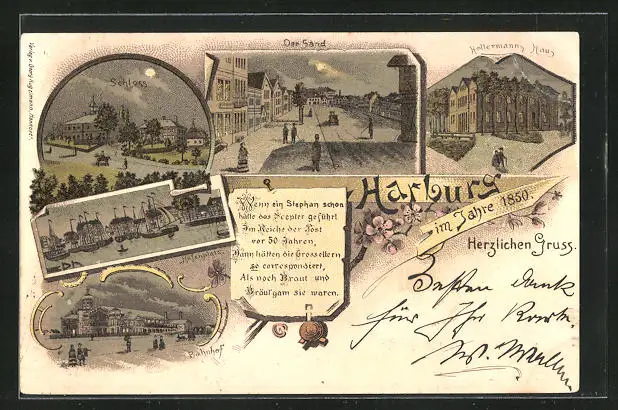 Der Sand
Schloss
Kellermanns Haus
Harburg
im Jahre 1850.
Herzlichen Gruss.
Wenn ein Stephan schon
hätte das Scepter geführt
Im Reiche der Post
vor 50 Jahren,
Dann hätten die Grosseltern
so correspondirt,
Als noch Braut und
Bräut'gam sie waren.
Hafenplatz
Bahnhof
Besten Dank
für Ihre Karte.